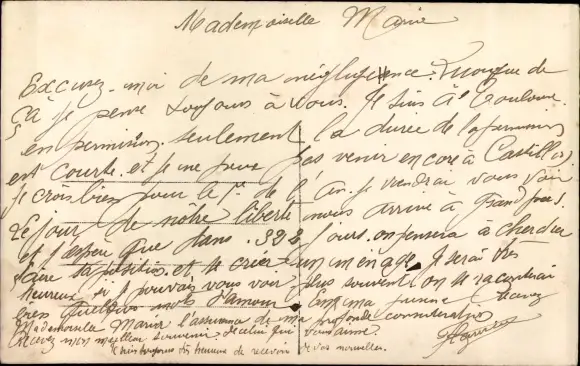 Mademoiselle Marie
Excusez-moi de ma négligence. Quoique de
çà je pense toujours à vous. Je suis à Toulouse
en permission. seulement la durée de la permission
est courte. et je ne peux pas venir encore à Castillon
je crois bien pour le 1er de l'An. je viendrai vous voir
Le jour de nôtre liberté nous arrive à grand pas.
et j'espère que dans 398 jours. on pensera à chercher
faire sa position. et à créer un ménage. Je serai très
heureux si je pouvais vous voir plus souvent on se raconterai
bien quelques mots d'amour
Mademoiselle Marie l'assurance de ma profonde considération
recevez mon meilleur souvenir. de celui qui vous aime.
Je suis toujours très heureux de recevoir de vos nouvelles.